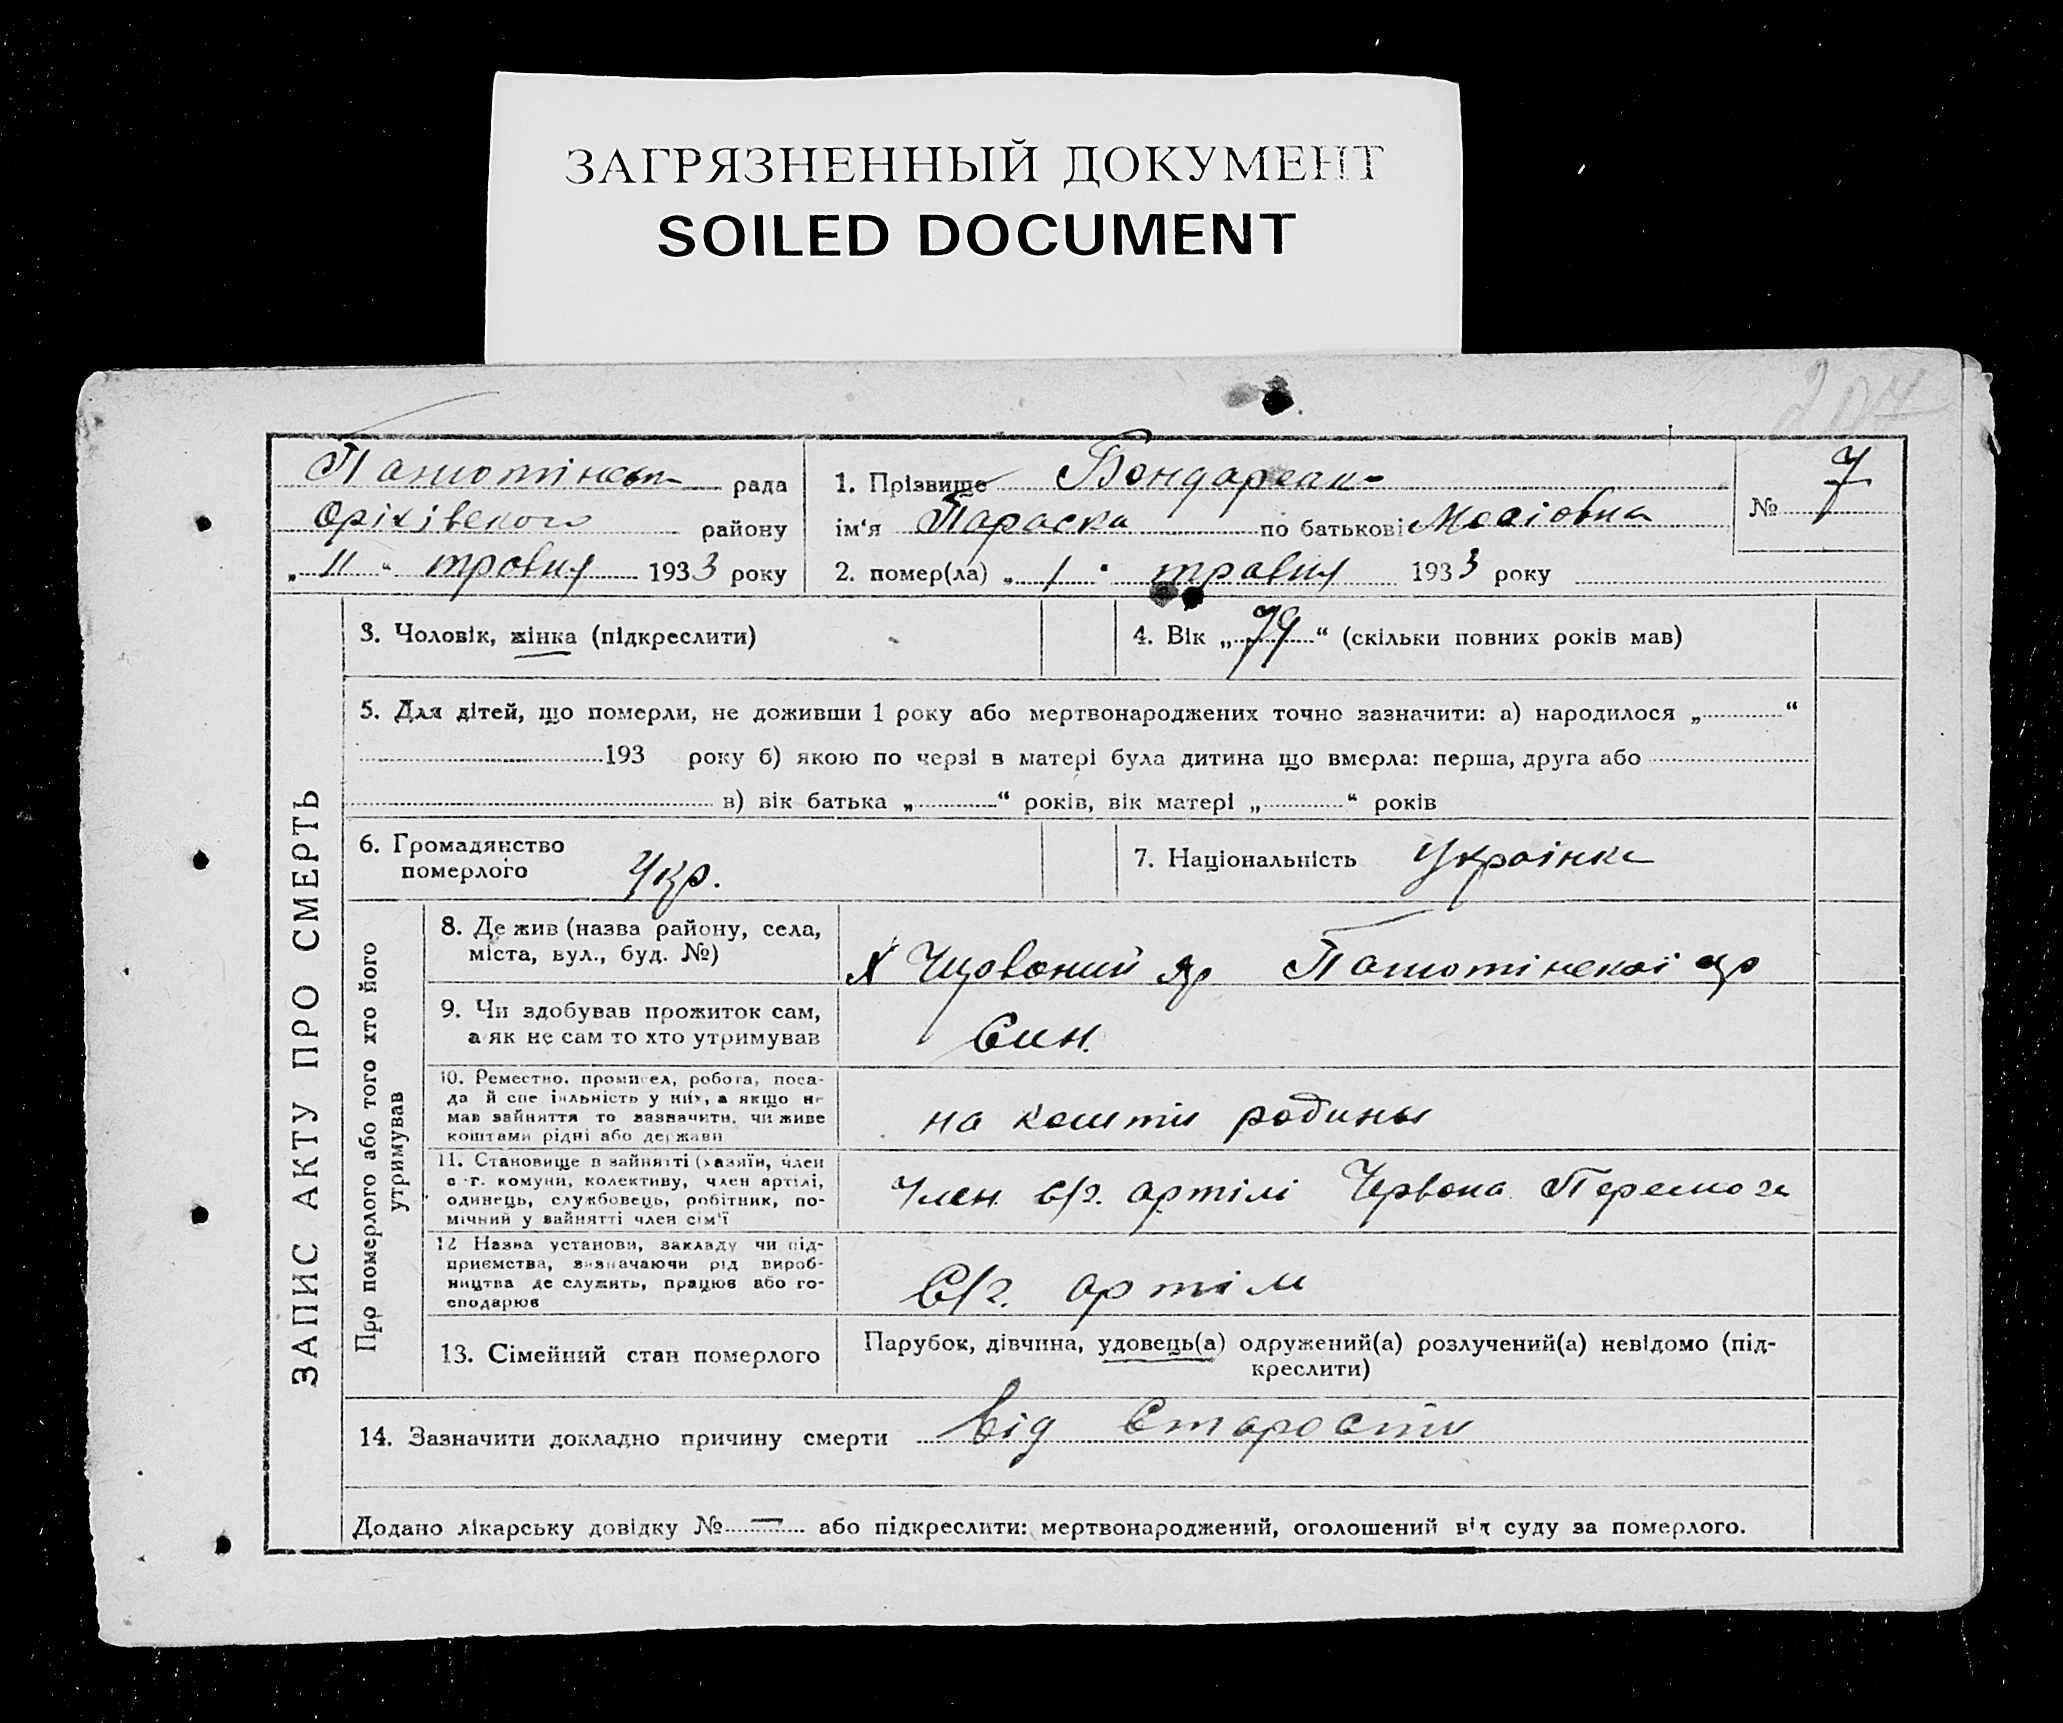 ЗАГРЯЗНЕННЫЙ ДОКУМЕНТ
SOILED DOCUMENT
рада
Оріхівського району
„11“ травня 1933 року
1. Прізвище Бондаренко
ім‘я Параска по батькові Мосіовна
2. помер(ла) „1“ травня 1933 року
№ 7
ЗАПИС АКТУ ПРО СМЕРТЬ
3. Чоловік, жінка (підкреслити)
4. Вік „79“ (скільки повних років мав)
5. Для дітей, що померли, не доживши 1 року або мертвонароджених точно зазначити: а) народилося „ “
193 року б) якою по черзі в матері була дитина що вмерла: перша, друга або
в) вік батька „ “ років, вік матері „ “ років
6. Громадянство
померлого Укр.
7. Національність Українка
Про померлого або того хто його
утримував
8. Де жив (назва району, села,
міста, вул., буд. №)
Х Червоний Яр
9. Чи здобував прожиток сам,
а як не сам то хто утримував
Син.
10. Ремество, промисел, робота, поса-
да й спеціяльність у них, а якщо не
мав зайняття то зазначити, чи живе
коштами рідні або держави
на кошти родины
11. Становище в зайнятті (хазяїн, член
с.-г. комуни, колективу, член артілі,
одинець, службовець, робітник, по-
мічний у зайнятті член сім'ї
Член с/г. артілі Червона Перемога
12 Назва установи, закладу чи під-
приємства, визначаючи рід вироб-
ництва де служить, працює або го-
сподарює
С/г. артіли
13. Сімейний стан померлого
Парубок, дівчина, удовець(а) одружений(а) розлучений(а) невідомо (під-
креслити)
14. Зазначити докладно причину смерти Від Старости
Додано лікарську довідку № — або підкреслити: мертвонароджений, оголошений від суду за померлого.